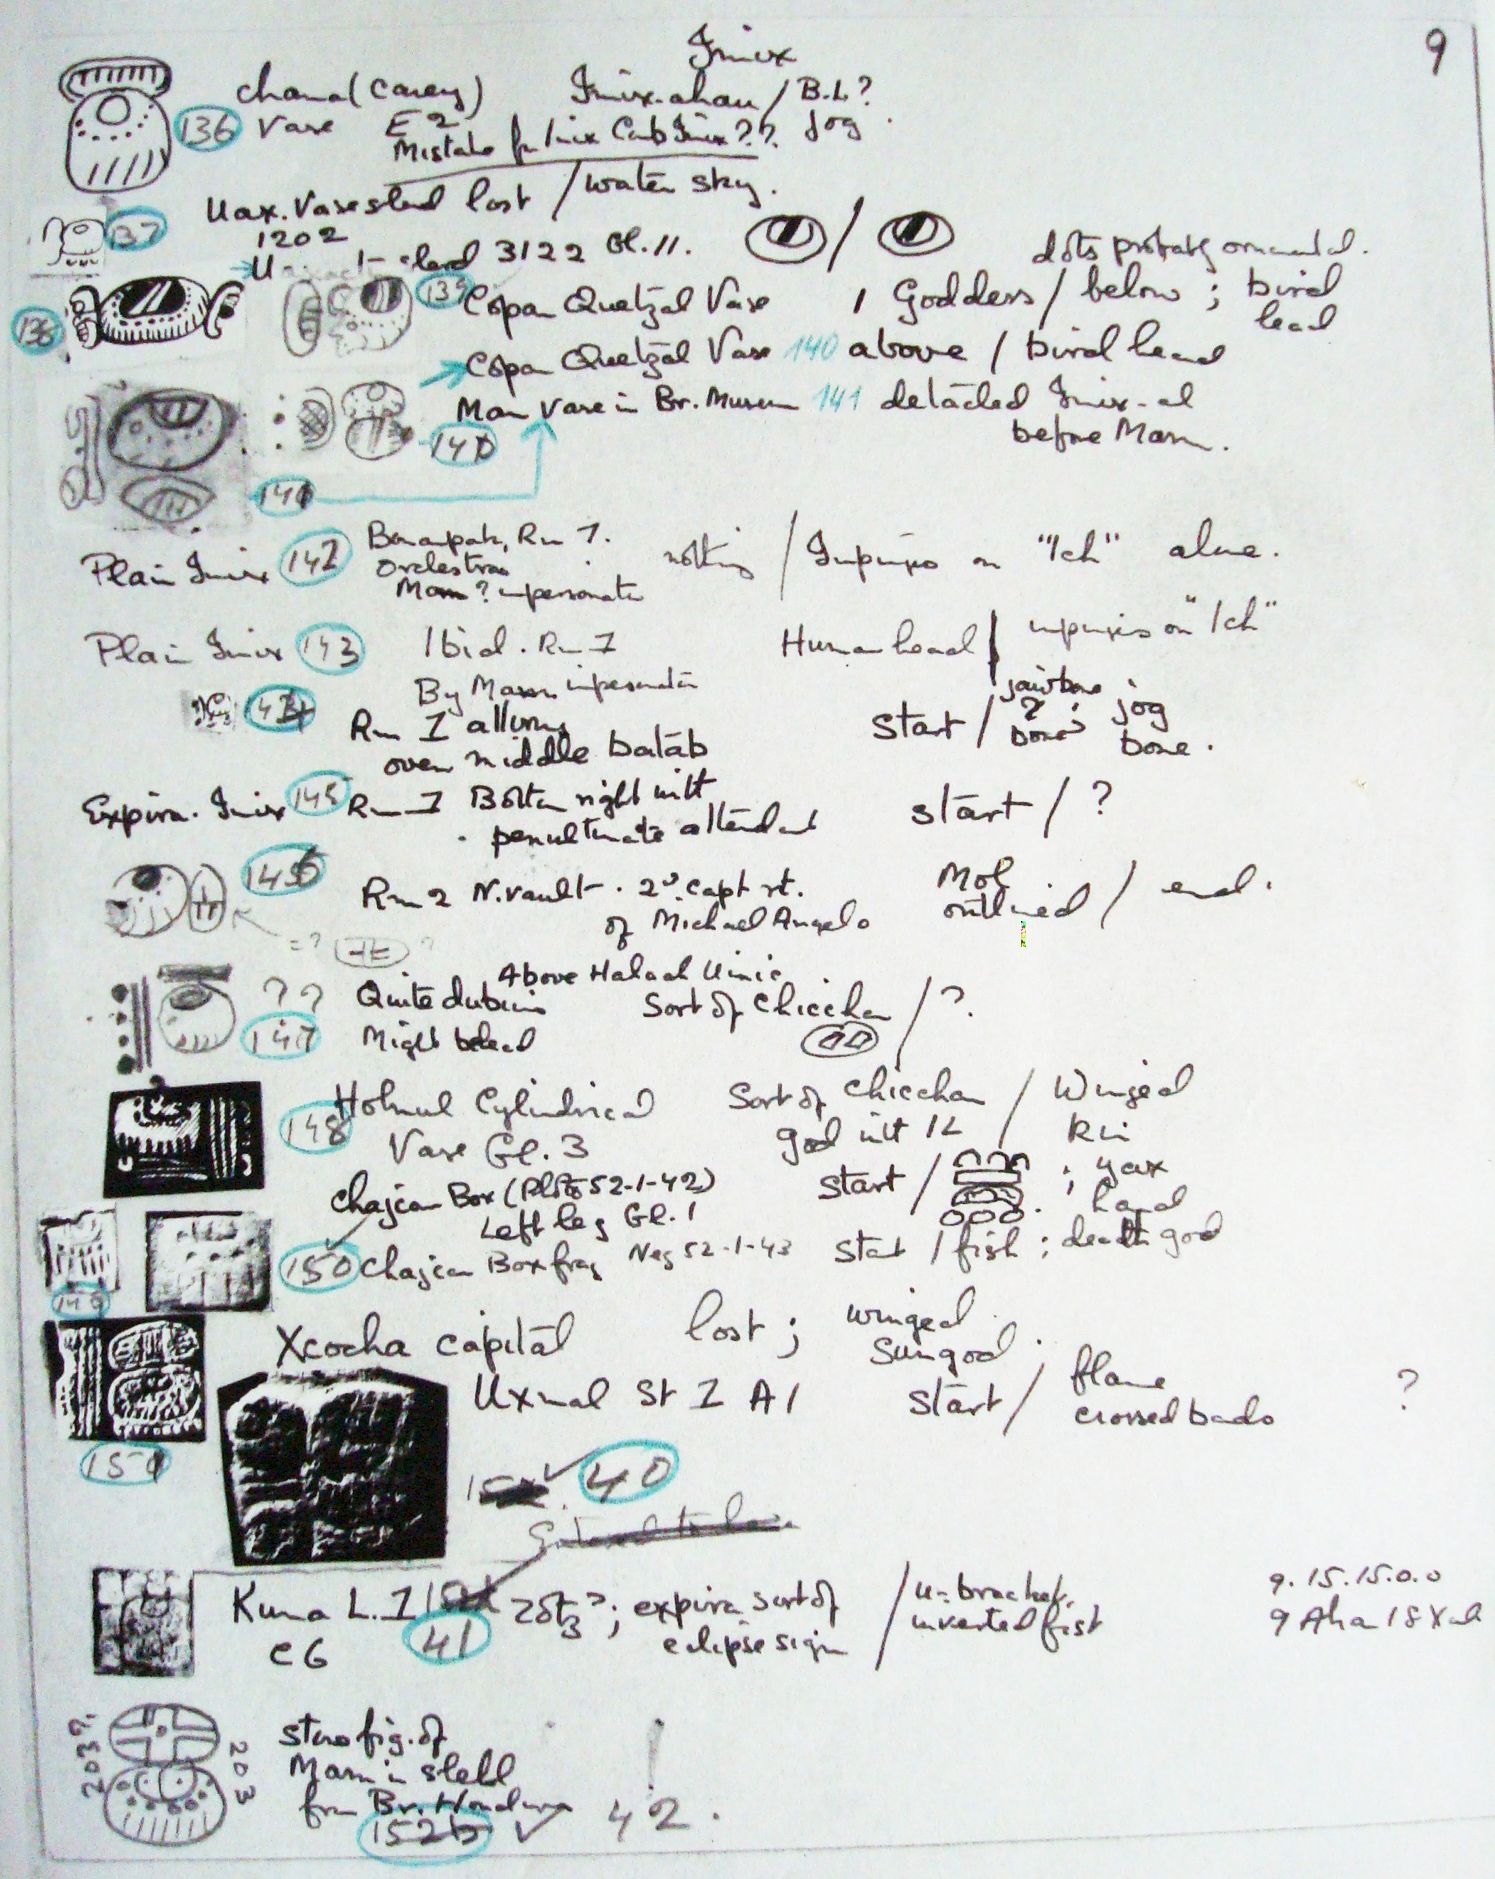 Imix
9
Chama (Carey) Imix.ahau / B.L?
136 Vase E2 jog.
Mistake for Imix Cab Imix??
Uax. Vase sherd lost / water sky.
137 1202
sherd 3122 Gl. 11. / dots probably ornamental.
138
139 Copan Quetzal Vase 1 Goddess / below ; bird
head
Copan Quetzal Vase 140 above / bird head
Mam Vase in Br. Museum 141 detached Imix-al
before Mam.
140
141
Plain Imix 142 Bonampak, Rm 1. nothing / Impinges on "Ich" alone.
Orchestra
Mam? impersonator
Plain Imix 143 Ibid. Rm 1 Human head / impinges on "Ich"
By Mam impersonator
144 Rm 1 start / jawbone ? bone ; jog
over middle batab bone.
Expira. Imix 145 Rm 1 Bottom right with start / ?
penultimate attendant
146 Rm 2 N. vault. 2d Capt rt. Mol / end.
of Michael Angelo outlined
= ? ?
Above Halach Uinic
?? Quite dubious Sort of Chicchan / ?
147 Might be head
148 Holmul Cylindrical Sort of Chicchan / Winged
Vase Gl. 3 god with IL Kin
Chajcar Box (Photo 52-1-42) start / ; yax
Left leg Gl. 1 hand
149
150 Chajcar Box frag Neg 52-1-43 Start / fish ; death god
Xcocha capital lost ; winged
Sungod.
Uxmal St 1 A1 start / flame ?
crossed bands
151
40
Kuna L. 1 ; expira sort of / u-bracket, 9.15.15.0.0
C6 41 eclipse sign inverted fist 9 Aha 18 Xul
203? 203
fig. of
Mam in shell
from Br. Honduras 42.
152b